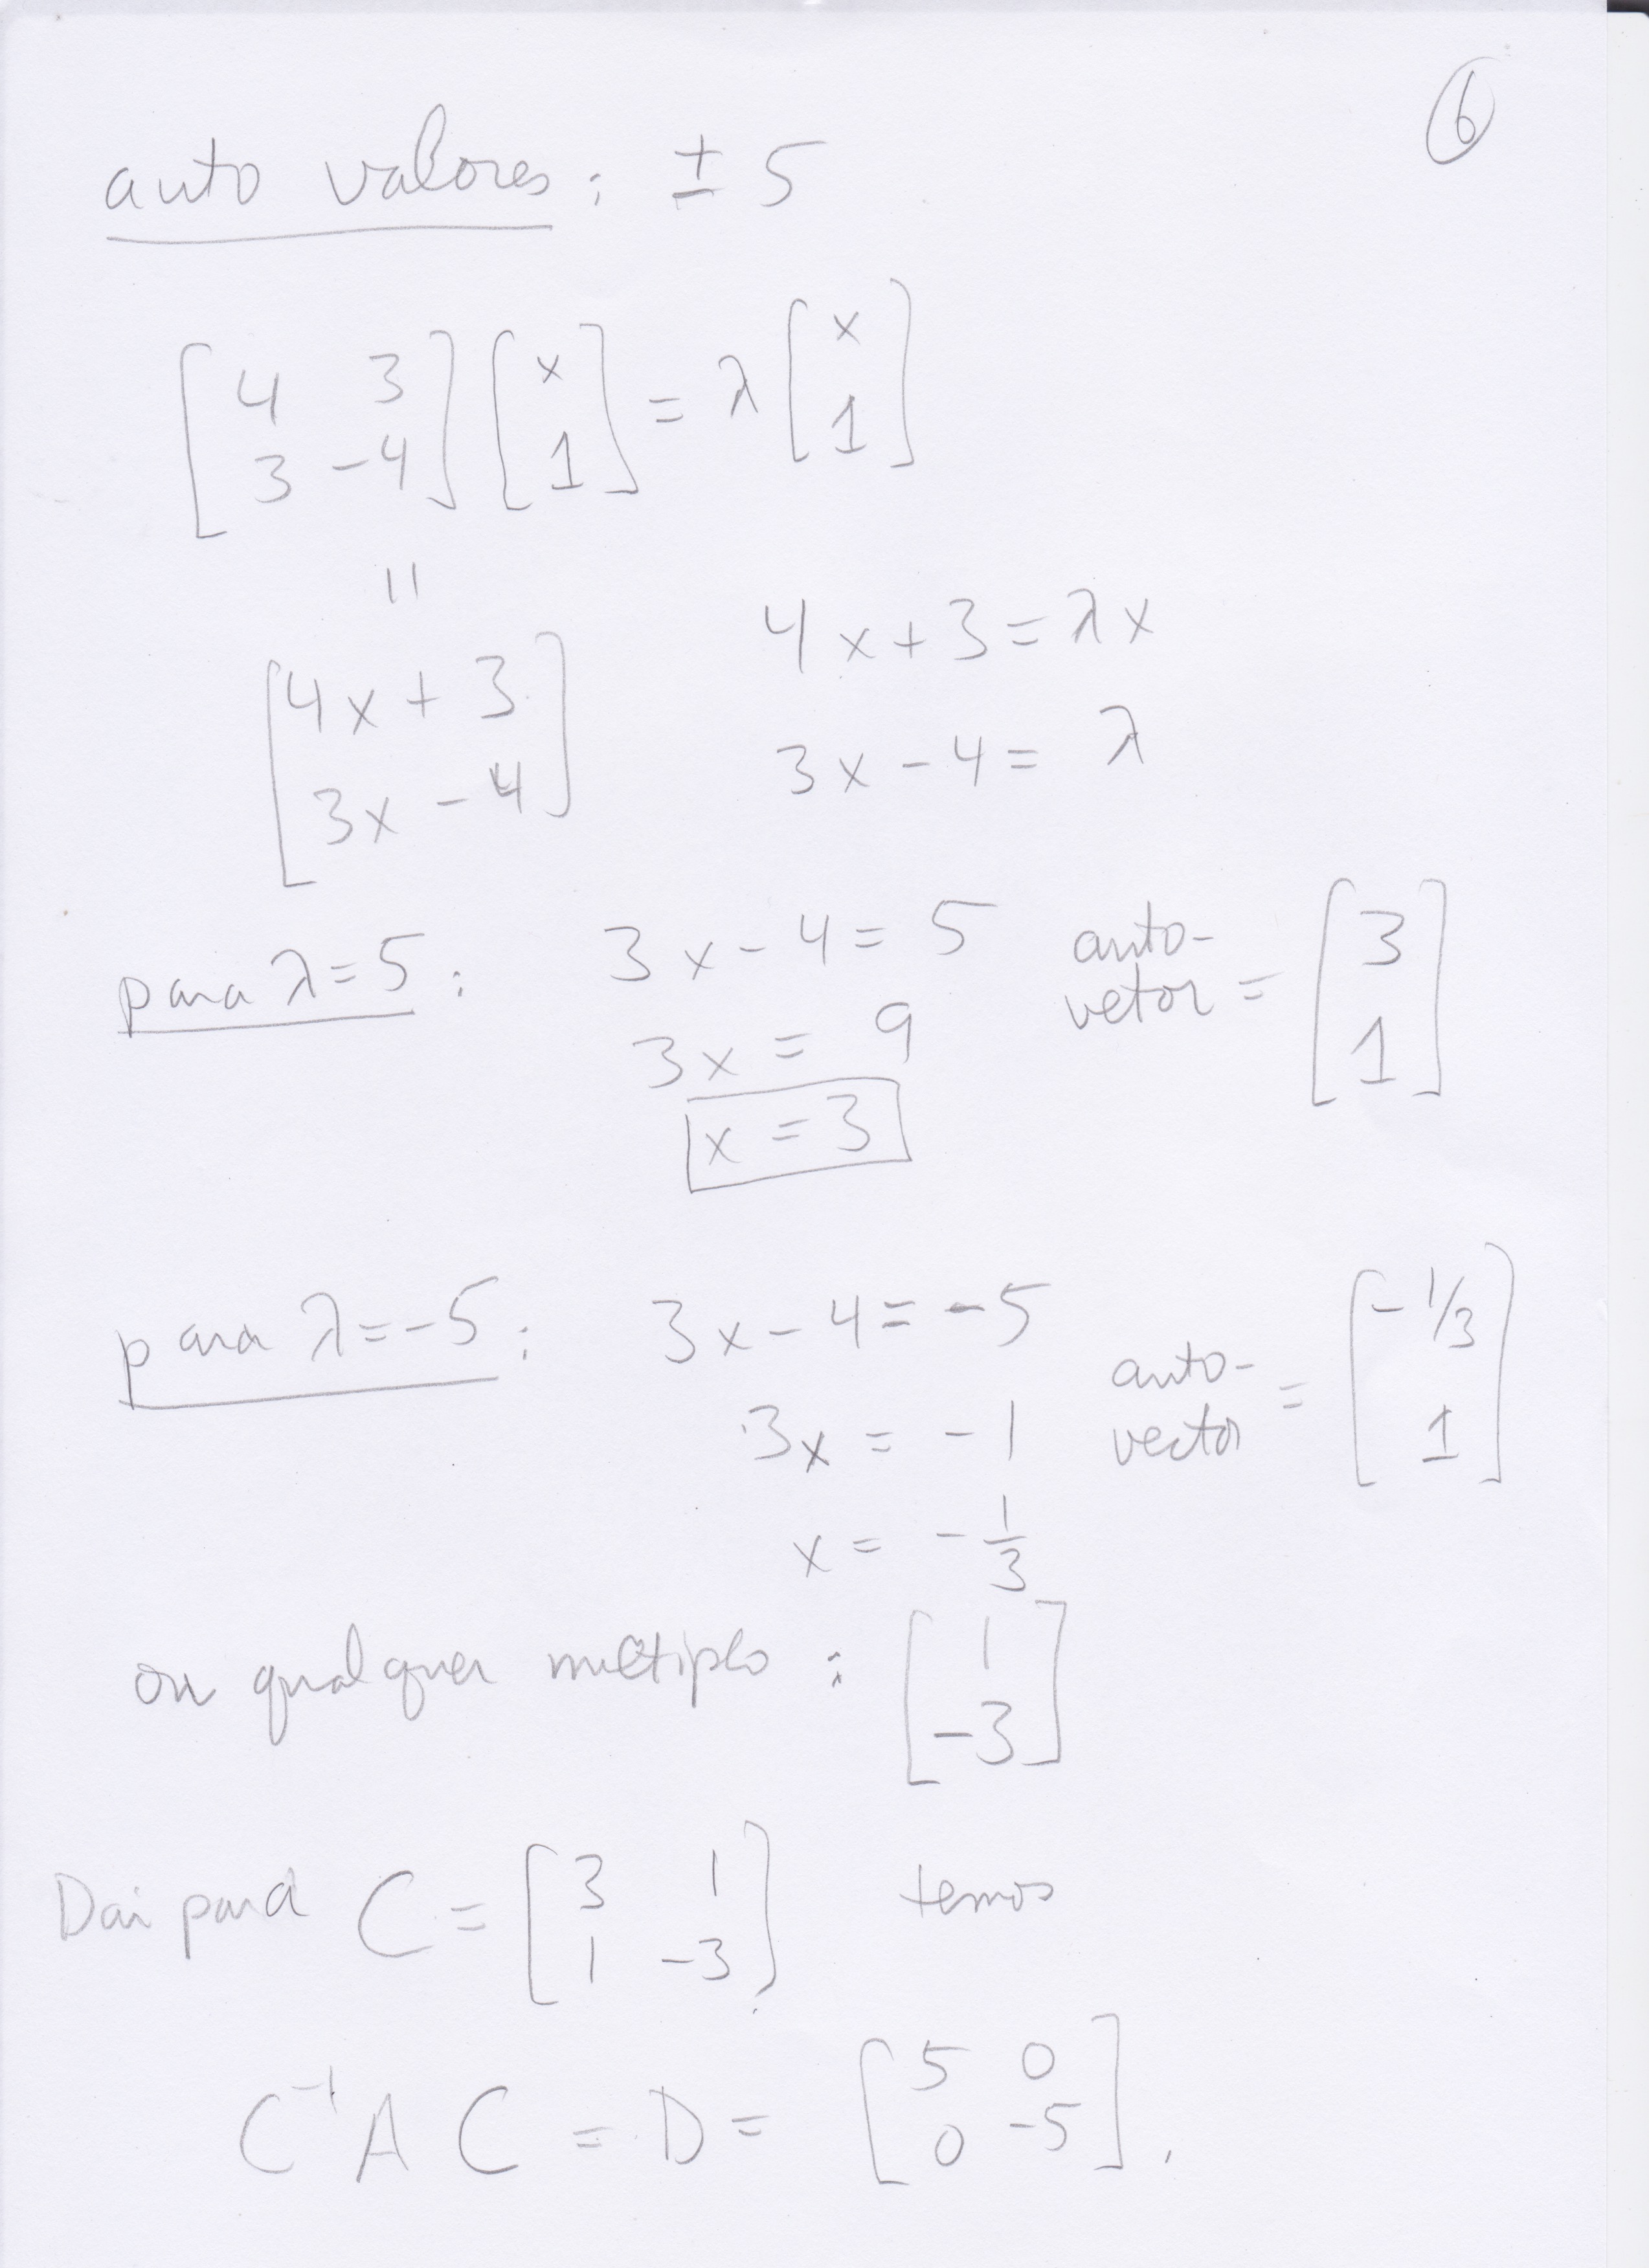 6
auto valores: ± 5
[4 3; 3 -4] [x; 1] = λ [x; 1]
=
[4x + 3; 3x - 4]
4x + 3 = λx
3x - 4 = λ
para λ = 5: 3x - 4 = 5 auto-vetor = [3; 1]
3x = 9
x = 3
para λ = -5: 3x - 4 = -5 auto-vector = [-1/3; 1]
3x = -1
x = -1/3
ou qualquer multiplo: [1; -3]
Dai para C = [3 1; 1 -3] temos
C⁻¹ A C = D = [5 0; 0 -5].